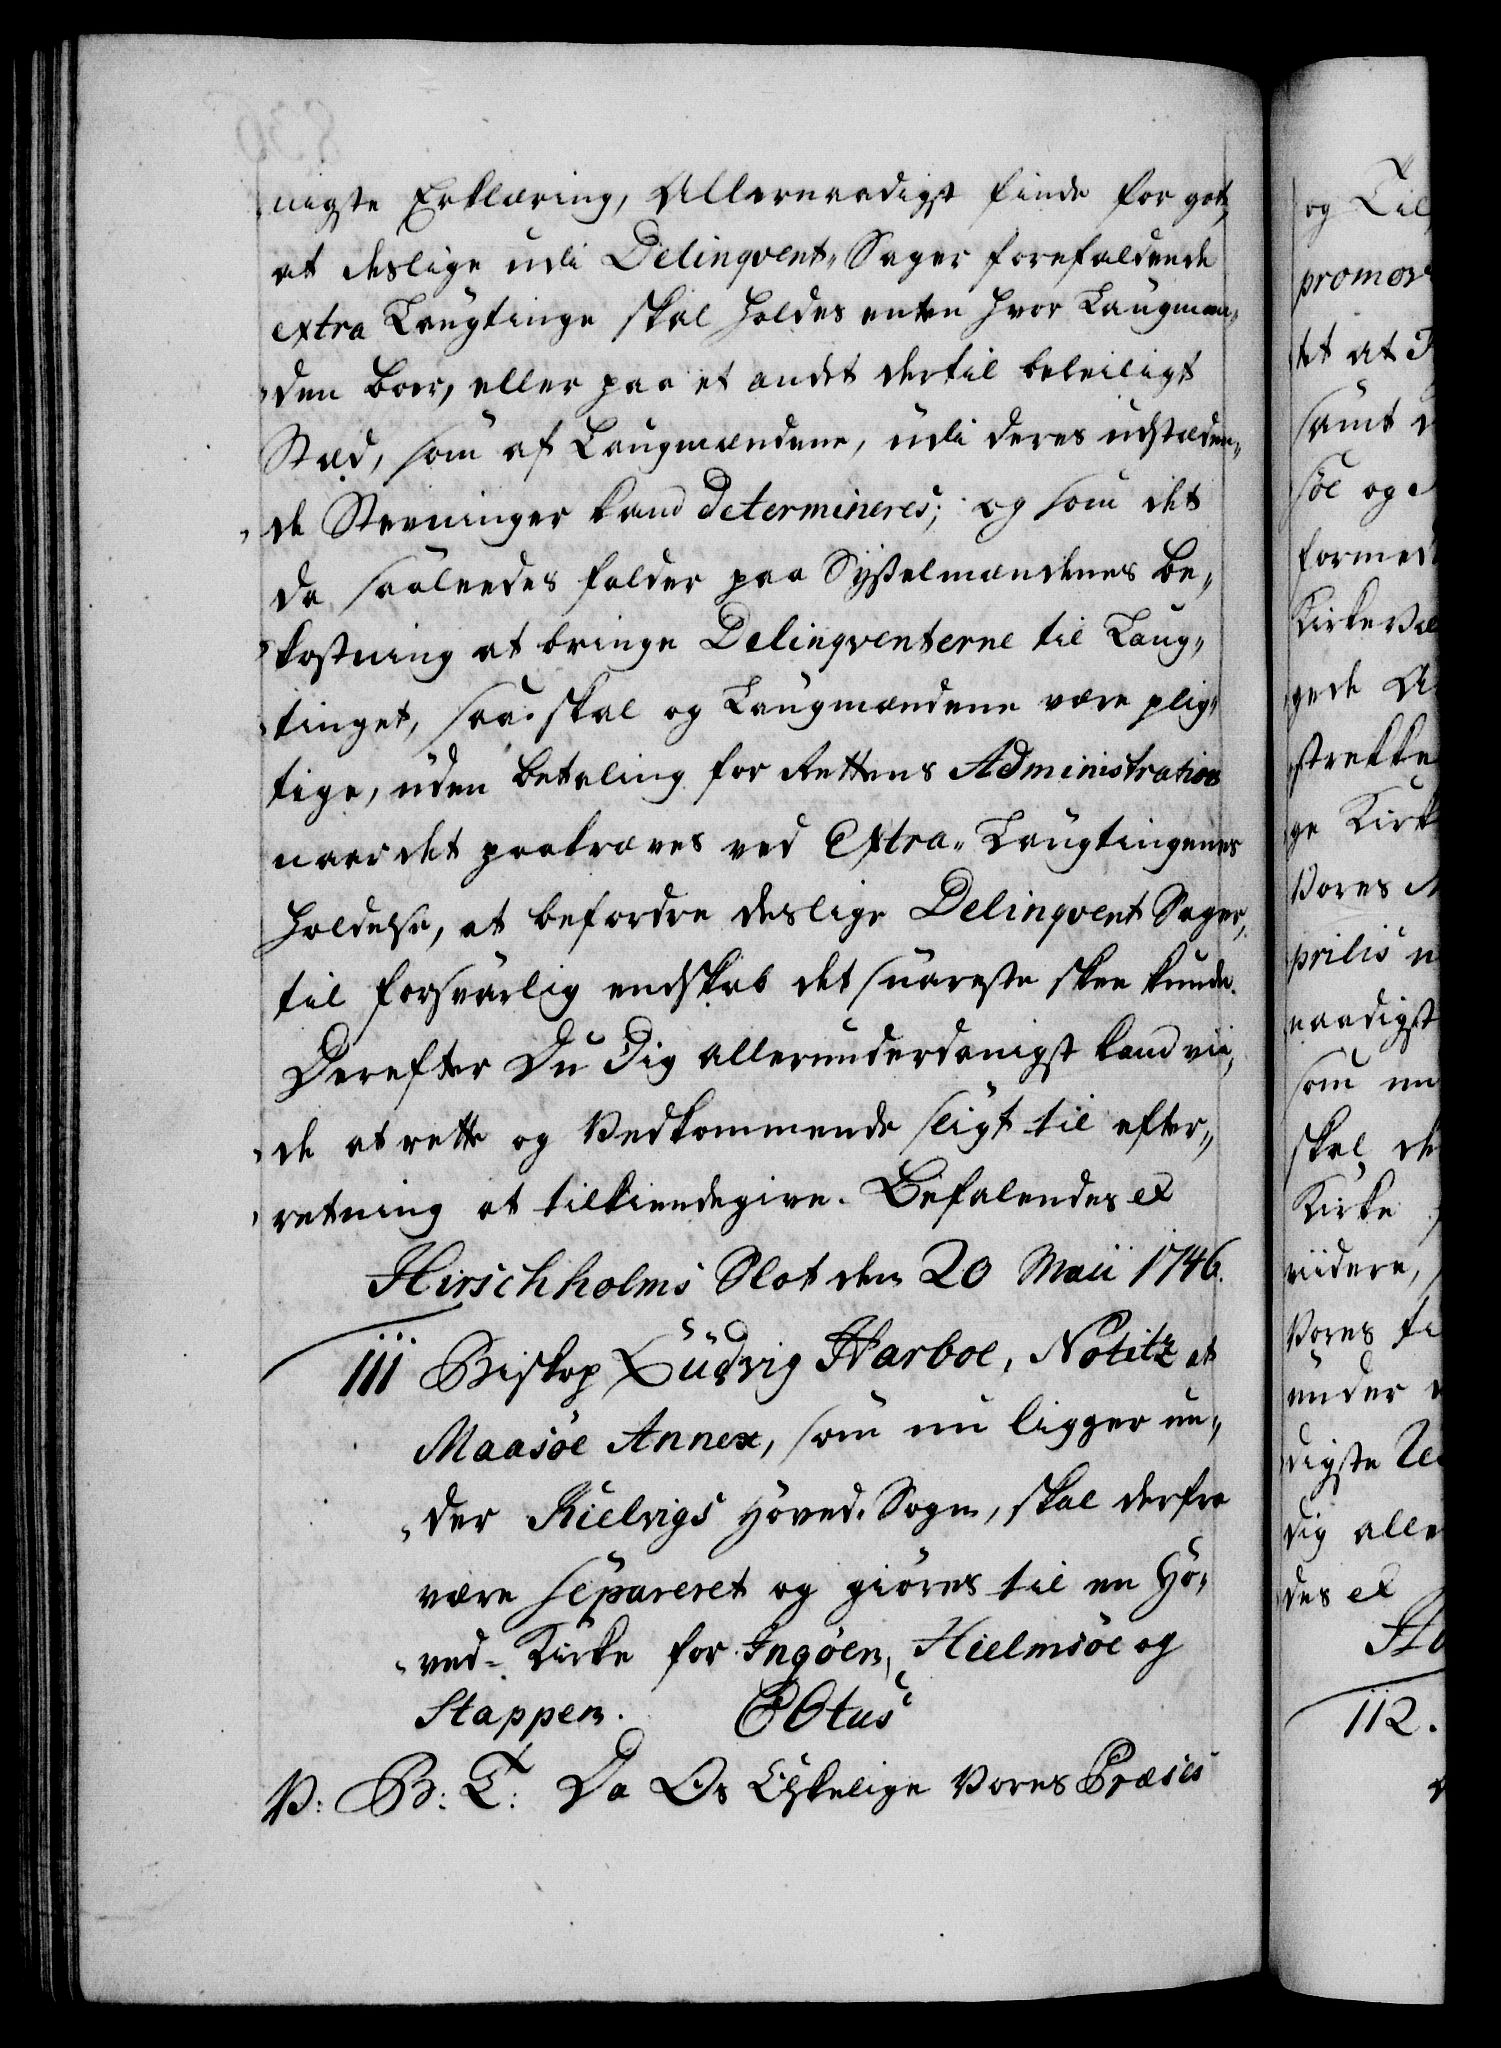 nigste Erklæring, Allernaadigst finde for got,
at deslige udi Delinqvent-Sager forefaldende
extra Laugtinge skal holdes enten hvor Laugman-
den boer, eller paa et andet dertil beleiligt
Stæd, som af Laugmændene, udi deres udstæden-
de Stevninger kand determineres; og som det
da saaleedes falder paa Sysselmændenes be-
kostning at bringe Delinqventerne til Laug-
tinget, saa skal og Laugmændene være plig-
tige, uden betaling for Rettens Administration
naar det paakræves ved Extra-Laugtingenes
holdelse, at befordre deslige Delinqvent Sager,
til forsvarlig endskab det snareste skee kunde.
Derefter Du Dig allerunderdanigst kand vii-
de at rette og Vedkommende sligt til efter-
retning at tilkiendegive. Befalendes et
Hirschholms Slot den 20 Maii 1746.
111 Biskop Ludvig Harboe, Notitz at
Maasöe Annex, som nu ligger un-
der Kielvigs Hoved-Sogn, skal derfra
være separeret og giöres til en Ho-
ved-Kirke for Ingöen, Hielmsöe og
Stappen.
V: B: T: Da Os Elskelige Vores Præses
og Til
samt
söe og
Kirke
Vores
prilis
naadigst
som
skal
Kirke
videre,
Vores
under
digste
dig alle
des et
112.